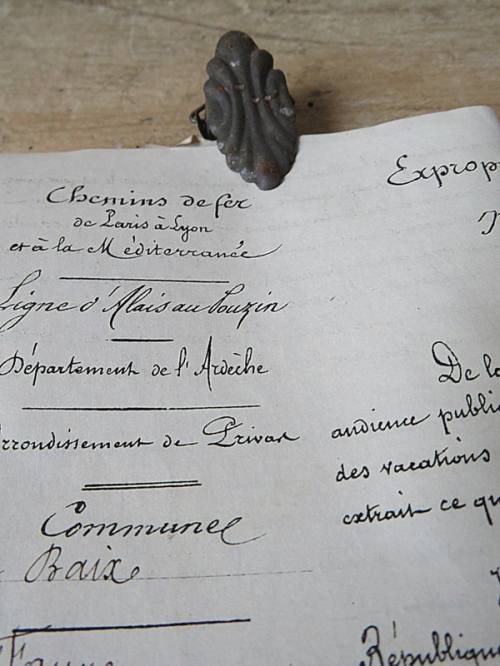 Chemins de fer
de Paris à Lyon
et à la Méditerranée
Ligne d'Alais au Pouzin
Département de l'Ardèche
rrondissement de Privas
Commune
Baix
Exprop
De la
audience public
des vacations
extrait ce qu
République